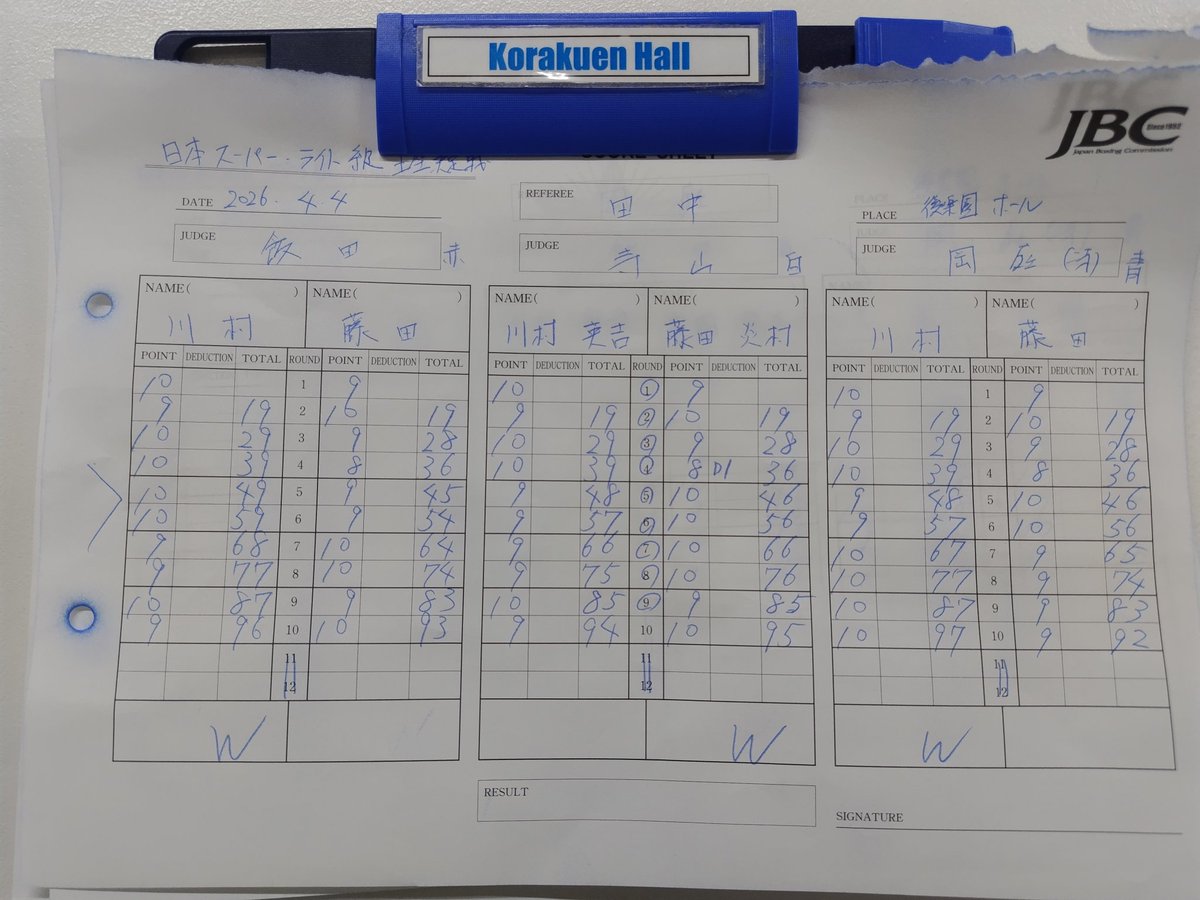 Korakuen Hall
JBC
Since 1952
Japan Boxing Commission
SCORE SHEET
日本スーパー・ライト級 王座決定戦
DATE 2026. 4. 4
REFEREE 田中
PLACE 後楽園ホール
JUDGE 飯田 赤
JUDGE 寺山 白
JUDGE 岡 (洒) 青
NAME( ) NAME( ) NAME( ) NAME( ) NAME( ) NAME( )
川村 藤田 川村 英吉 藤田 炎村 川村 藤田
POINT DEDUCTION TOTAL ROUND POINT DEDUCTION TOTAL POINT DEDUCTION TOTAL ROUND POINT DEDUCTION TOTAL POINT DEDUCTION TOTAL ROUND POINT DEDUCTION TOTAL
10 1 9 10 1 9 10 1 9
9 19 2 10 19 9 19 2 10 19 9 19 2 10 19
10 29 3 9 28 10 29 3 9 28 10 29 3 9 28
10 39 4 8 36 10 39 4 8 D1 36 10 39 4 8 36
10 49 5 9 45 9 48 5 10 46 9 48 5 10 46
10 59 6 9 54 9 57 6 10 56 9 57 6 10 56
9 68 7 10 64 9 66 7 10 66 10 67 7 9 65
9 77 8 10 74 9 75 8 10 76 10 77 8 9 74
10 87 9 9 83 10 85 9 9 85 10 87 9 9 83
9 96 10 10 93 9 94 10 10 95 10 97 10 9 92
11 11 11
12 12 12
W W W
RESULT
SIGNATURE